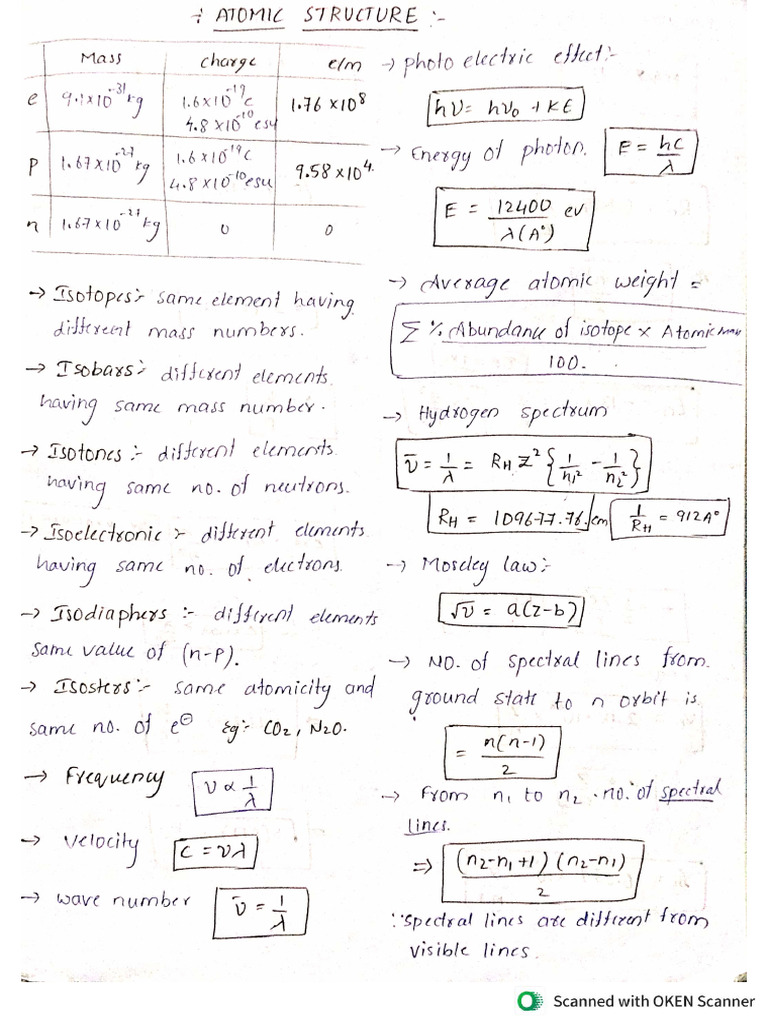 :- ATOMIC STRUCTURE :-
Mass charge e/m
e 9.1×10^-31 kg 1.6×10^-19 c 1.76 ×10^8
4.8 ×10^-10 esu
P 1.67×10^-27 kg 1.6 ×10^-19 c 9.58 ×10^4.
4.8 ×10^-10 esu
n 1.67×10^-27 kg 0 0
→ Isotopes:- same element having
different mass numbers.
→ Isobars:- different elements
having same mass number.
→ Isotones :- different elements
having same no. of neutrons.
→ Isoelectronic :- different elements
having same no. of electrons.
→ Isodiaphers :- different elements
same value of (n-p).
→ Isosters:- same atomicity and
same no. of e⊖ Eg:- CO2, N2O.
→ Frequency ν ∝ 1/λ
→ velocity C = νλ
→ wave number ν̄ = 1/λ
→ photo electric effect:-
hν = hν₀ + KE
→ Energy of photon. E = hc/λ
E = 12400/λ(A°) ev
→ Average atomic weight =
Σ % Abundance of isotope × Atomic mass
100.
→ Hydrogen spectrum
ν̄ = 1/λ = RH Z² {1/n₁² - 1/n₂²}
RH = 109677.76/cm 1/RH = 912A°
→ Moseley law:-
√ν = a(z-b)
→ NO. of spectral lines from
ground state to n orbit is
= n(n-1)/2
→ From n₁ to n₂ . no. of spectral
lines.
⇒ (n₂-n₁+1) (n₂-n₁)/2
∵ spectral lines are different from
visible lines.
Scanned with OKEN Scanner